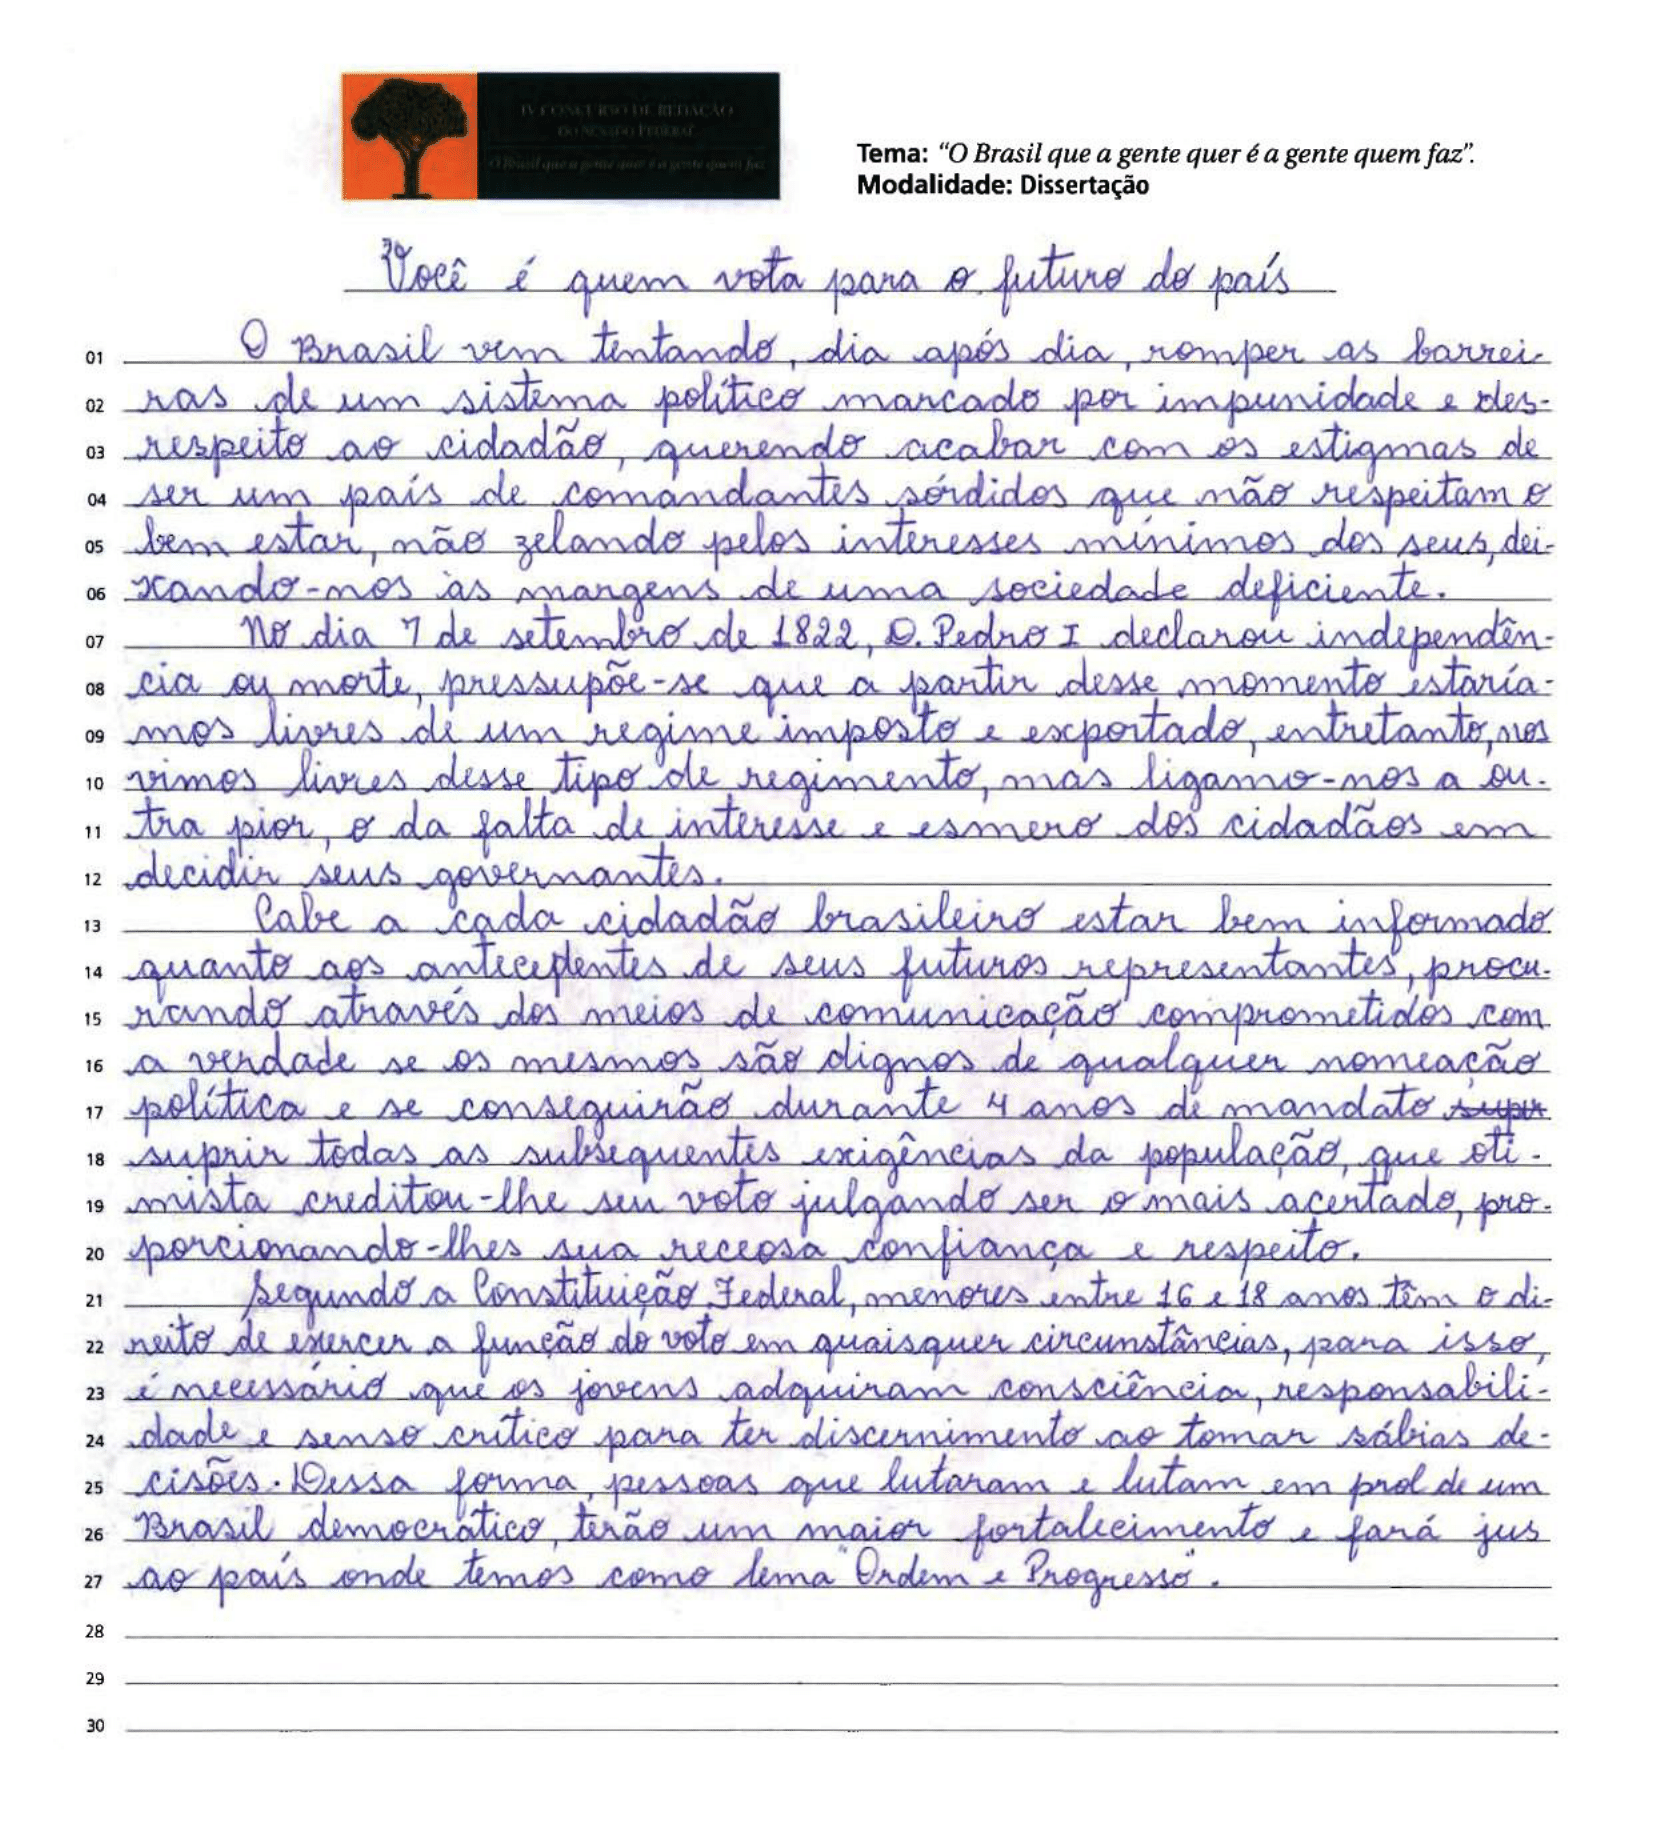 IV CONCURSO DE REDAÇÃO
DO SENADO FEDERAL
O Brasil que a gente quer é a gente quem faz
Tema: “O Brasil que a gente quer é a gente quem faz”.
Modalidade: Dissertação
Você é quem vota para o futuro do país
01 O Brasil vem tentando, dia após dia, romper as barrei-
02 ras de um sistema político marcado por impunidade e des-
03 respeito ao cidadão, querendo acabar com os estigmas de
04 ser um país de comandantes sórdidos que não respeitam o
05 bem estar, não zelando pelos interesses mínimos dos seus, dei-
06 xando-nos às margens de uma sociedade deficiente.
07 No dia 7 de setembro de 1822, D. Pedro I declarou independên-
08 cia ou morte, pressupõe-se que a partir desse momento estaría-
09 mos livres de um regime imposto e exportado, entretanto, nos
10 vimos livres desse tipo de regimento, mas ligamo-nos a ou-
11 tra pior, o da falta de interesse e esmero dos cidadãos em
12 decidir seus governantes.
13 Cabe a cada cidadão brasileiro estar bem informado
14 quanto aos antecedentes de seus futuros representantes, procu-
15 rando através dos meios de comunicação comprometidos com
16 a verdade se os mesmos são dignos de qualquer nomeação
17 política e se conseguirão durante 4 anos de mandato supr
18 suprir todas as subsequentes exigências da população, que oti-
19 mista creditou-lhe seu voto julgando ser o mais acertado, pro-
20 porcionando-lhes sua receosa confiança e respeito.
21 Segundo a Constituição Federal, menores entre 16 e 18 anos têm o di-
22 reito de exercer a função do voto em quaisquer circunstâncias, para isso,
23 é necessário que os jovens adquiram consciência, responsabili-
24 dade e senso crítico para ter discernimento ao tomar sábias de-
25 cisões. Dessa forma, pessoas que lutaram e lutam em prol de um
26 Brasil democrático, terão um maior fortalecimento e fará jus
27 ao país onde temos como lema "Ordem e Progresso".
28
29
30